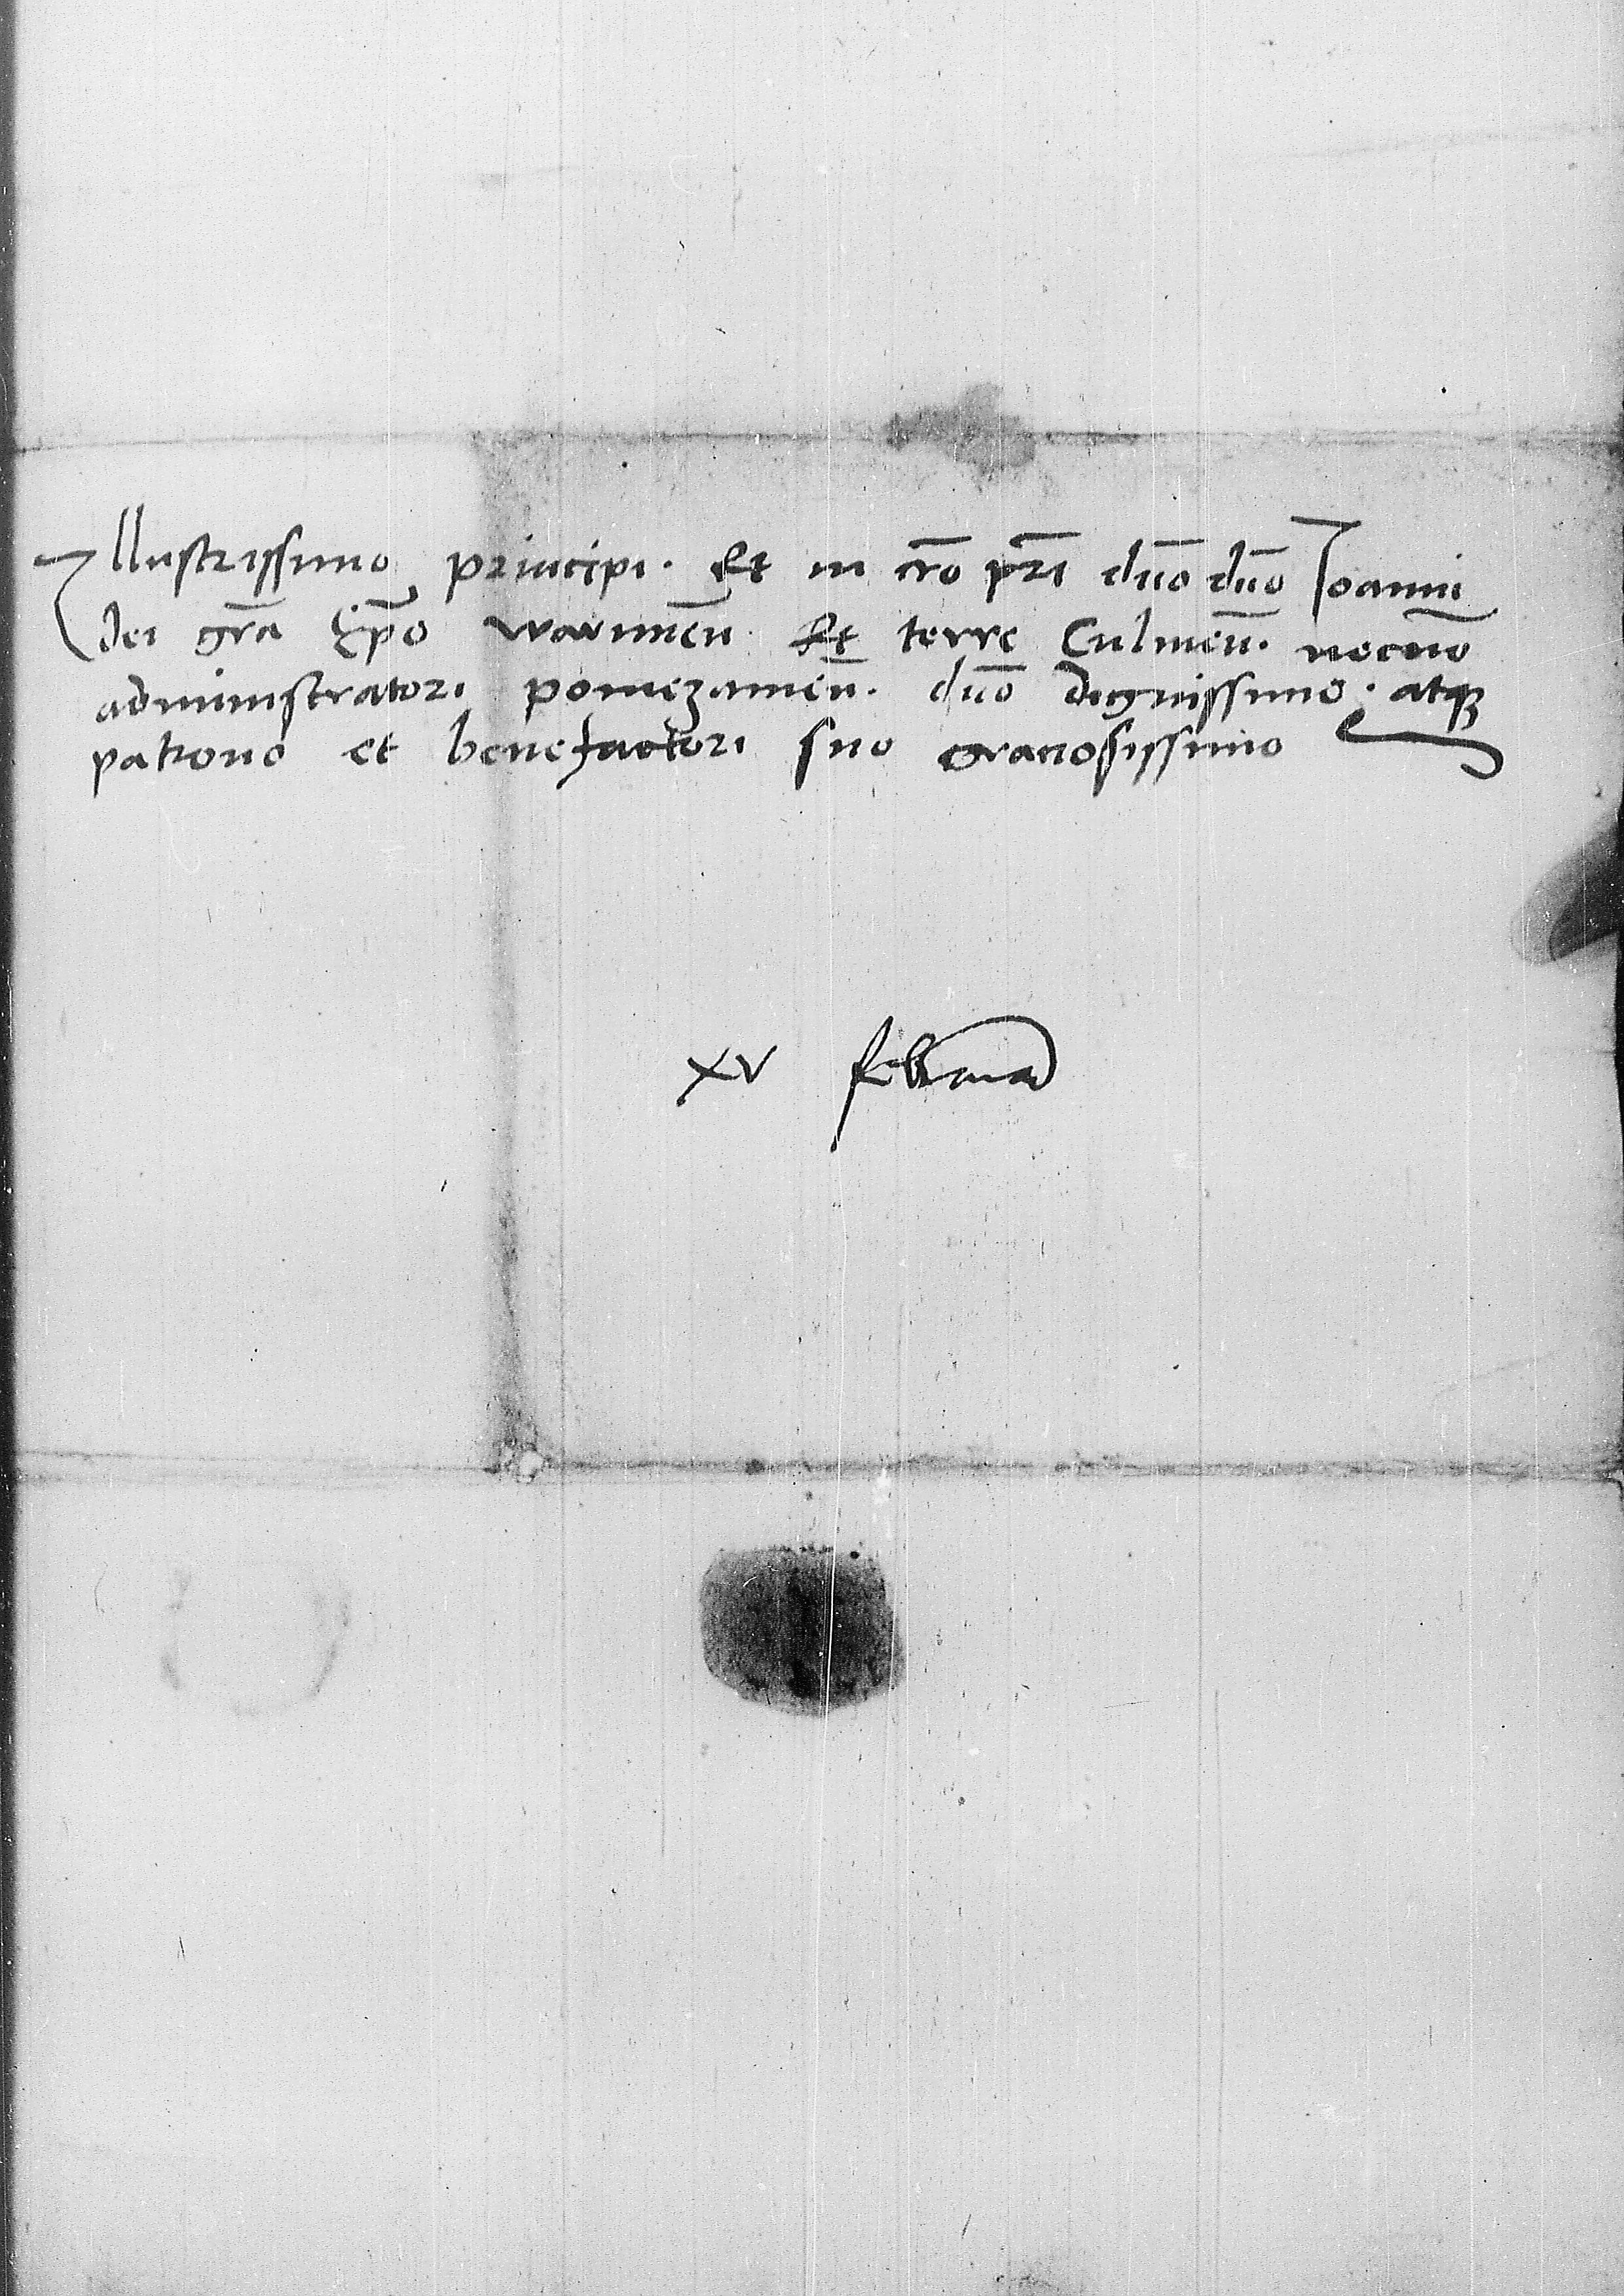 Illustrissimo principi. Et in cr̄o pr̄i dn̄o dn̄o Ioanni
dei gr̄a Ep̄o warmien̄. Et terre Culmen̄. necnō
administratori pomezanien̄. dn̄o dignissimo. atqꝫ
patrono et benefactori suo gratiosissimo
xv februarij